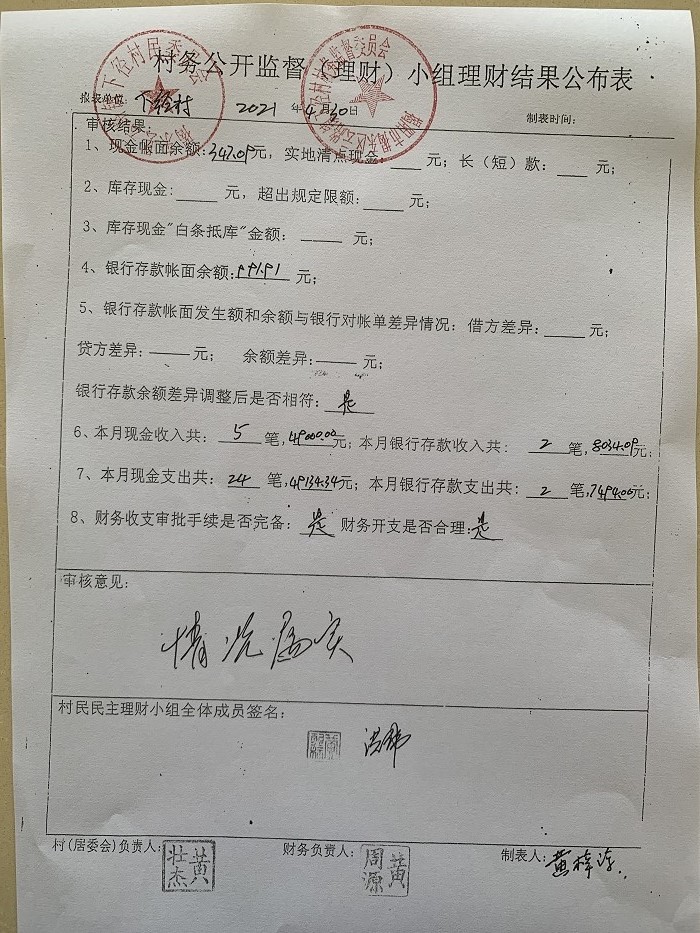 村务公开监督（理财）小组理财结果公布表
拟表单位 下径村 2021 年 4月30日 制表时间：
审核结果：
1、现金帐面余额：347.09元，实地清点现金：____元；长（短）款：____元；
2、库存现金：____元，超出规定限额：____元；
3、库存现金"白条抵库"金额：____元；
4、银行存款帐面余额：991.91元；
5、银行存款帐面发生额和余额与银行对帐单差异情况：借方差异：____元；
贷方差异：——元； 余额差异：——元；
银行存款余额差异调整后是否相符：是
6、本月现金收入共：5笔，49000.00元；本月银行存款收入共：2笔，8034.09元；
7、本月现金支出共：24笔，49134.34元；本月银行存款支出共：2笔，7494.00元；
8、财务收支审批手续是否完备：是 财务开支是否合理：是
审核意见：
情况属实
村民民主理财小组全体成员签名：
村(居委会)负责人：黄壮杰 财务负责人：黄周源 制表人：黄梓